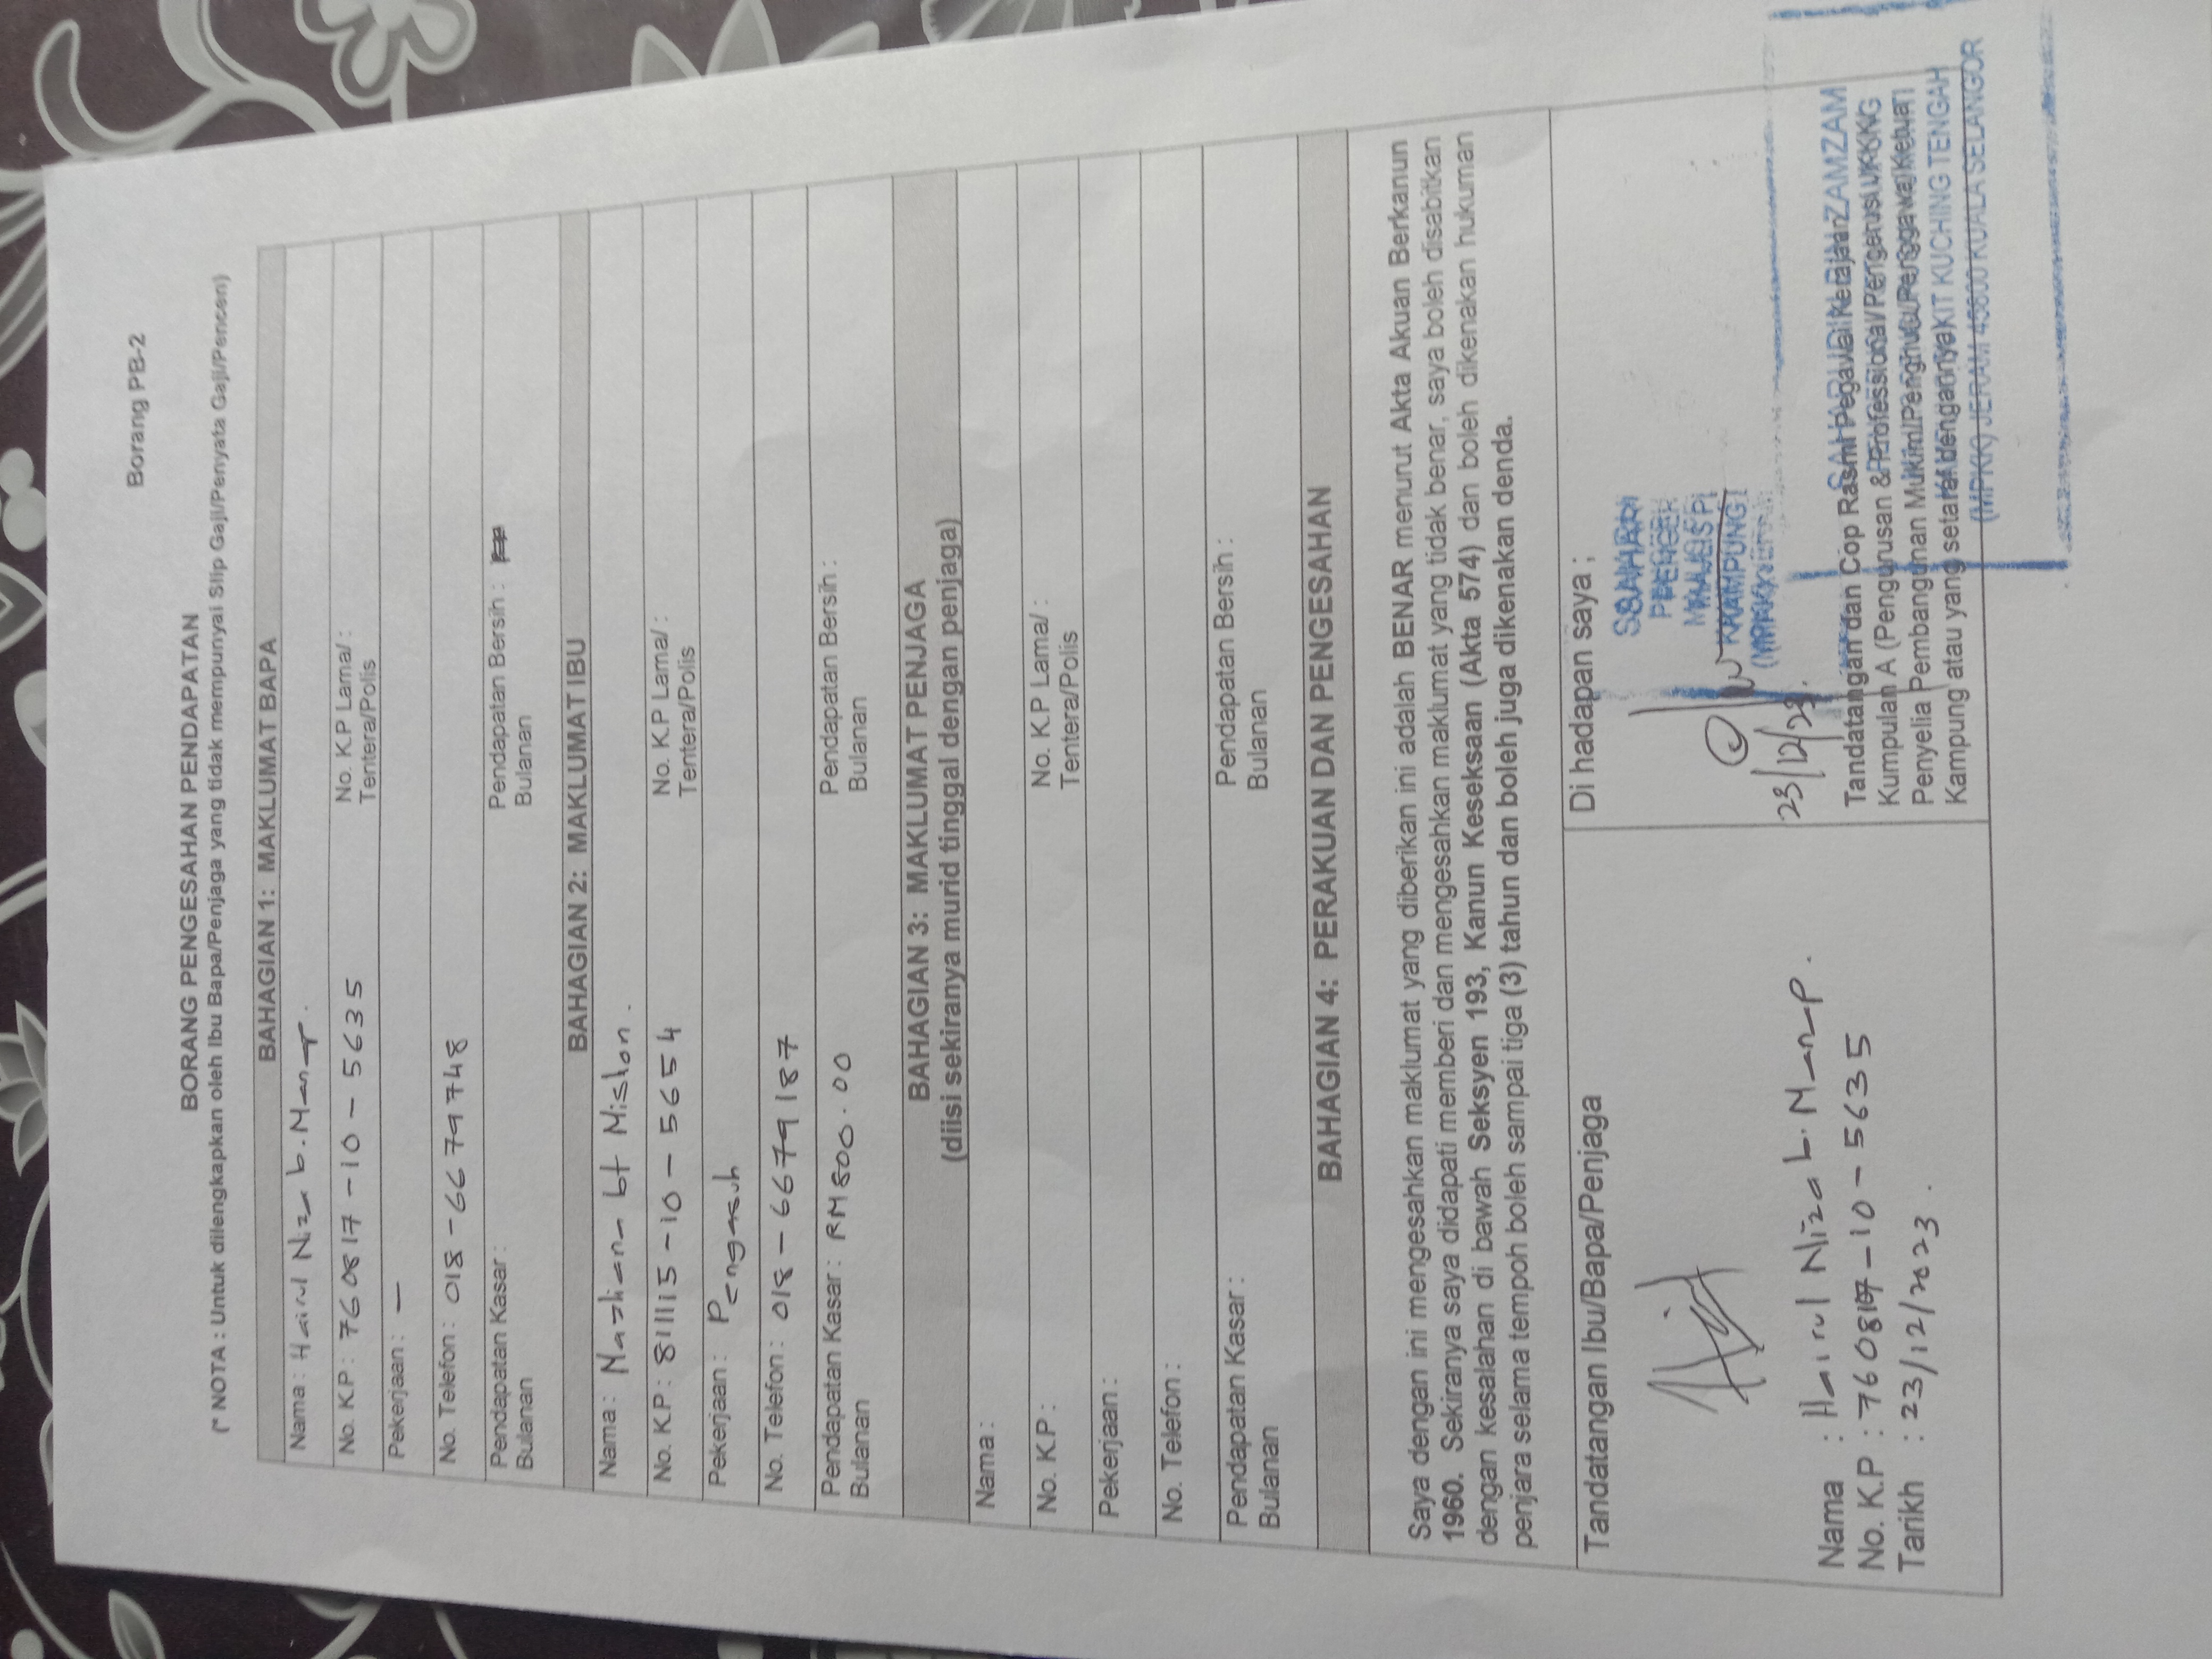 Borang PB-2
BORANG PENGESAHAN PENDAPATAN
(* NOTA : Untuk dilengkapkan oleh Ibu Bapa/Penjaga yang tidak mempunyai Slip Gaji/Penyata Gaji/Pencen)
BAHAGIAN 1: MAKLUMAT BAPA
Nama : Hairul Niza b. Manap.
No. K.P : 760817-10-5635 No. K.P Lama/ :
Tentera/Polis
Pekerjaan : —
No. Telefon : 018-6679748
Pendapatan Kasar : Pendapatan Bersih :
Bulanan Bulanan
BAHAGIAN 2: MAKLUMAT IBU
Nama : Nazliana bt Mislon.
No. K.P : 811115-10-5654 No. K.P Lama/ :
Tentera/Polis
Pekerjaan : Pengasuh
No. Telefon : 018-6679187
Pendapatan Kasar : RM800.00 Pendapatan Bersih :
Bulanan Bulanan
BAHAGIAN 3: MAKLUMAT PENJAGA
(diisi sekiranya murid tinggal dengan penjaga)
Nama :
No. K.P : No. K.P Lama/ :
Tentera/Polis
Pekerjaan :
No. Telefon :
Pendapatan Kasar : Pendapatan Bersih :
Bulanan Bulanan
BAHAGIAN 4: PERAKUAN DAN PENGESAHAN
Saya dengan ini mengesahkan maklumat yang diberikan ini adalah BENAR menurut Akta Akuan Berkanun
1960. Sekiranya saya didapati memberi dan mengesahkan maklumat yang tidak benar, saya boleh disabitkan
dengan kesalahan di bawah Seksyen 193, Kanun Keseksaan (Akta 574) dan boleh dikenakan hukuman
penjara selama tempoh boleh sampai tiga (3) tahun dan boleh juga dikenakan denda.
Tandatangan Ibu/Bapa/Penjaga
Nama : Hairul Niza b. Manap.
No. K.P : 760817-10-5635
Tarikh : 23/12/2023.
Di hadapan saya ;
SAHARI
PENGER
MAJLIS PE
KAMPUNG
(MPKK) JERAM
23/12/23.
Tandatangan dan Cop Rasmi Pegawai Kerajaan
Kumpulan A (Pengurusan & Professional/Pengerusi JKKK/
Penyelia Pembangunan Mukim/Penghulu/Penggawa/Ketua
Kampung atau yang setaraf dengannya)
SAHARUDIN BIN ZAMZAM
KAMPUNG BUKIT KUCHING TENGAH
(MPKK) JERAM 45800 KUALA SELANGOR